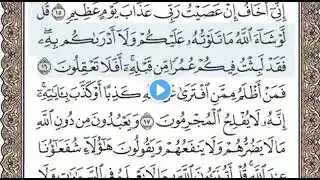 إِنِّىٓ أَخَافُ إِنْ عَصَيْتُ رَبِّى عَذَابَ يَوْمٍ عَظِيمٍ ١٥ قُل
لَّوْ شَآءَ ٱللَّهُ مَا تَلَوْتُهُۥ عَلَيْكُمْ وَلَآ أَدْرَىٰكُم بِهِۦ
فَقَدْ لَبِثْتُ فِيكُمْ عُمُرًا مِّن قَبْلِهِۦٓ أَفَلَا تَعْقِلُونَ ١٦
فَمَنْ أَظْلَمُ مِمَّنِ ٱفْتَرَىٰ كَذِبًا أَوْ كَذَّبَ بِـَٔايَـٰتِهِۦٓ
إِنَّهُۥ لَا يُفْلِحُ ٱلْمُجْرِمُونَ ١٧ وَيَعْبُدُونَ مِن دُونِ ٱللَّهِ
مَا لَا يَضُرُّهُمْ وَلَا يَنفَعُهُمْ وَيَقُولُونَ هَـٰٓؤُلَآءِ شُفَعَـٰٓؤُنَا
عِندَ ٱللَّهِ قُلْ